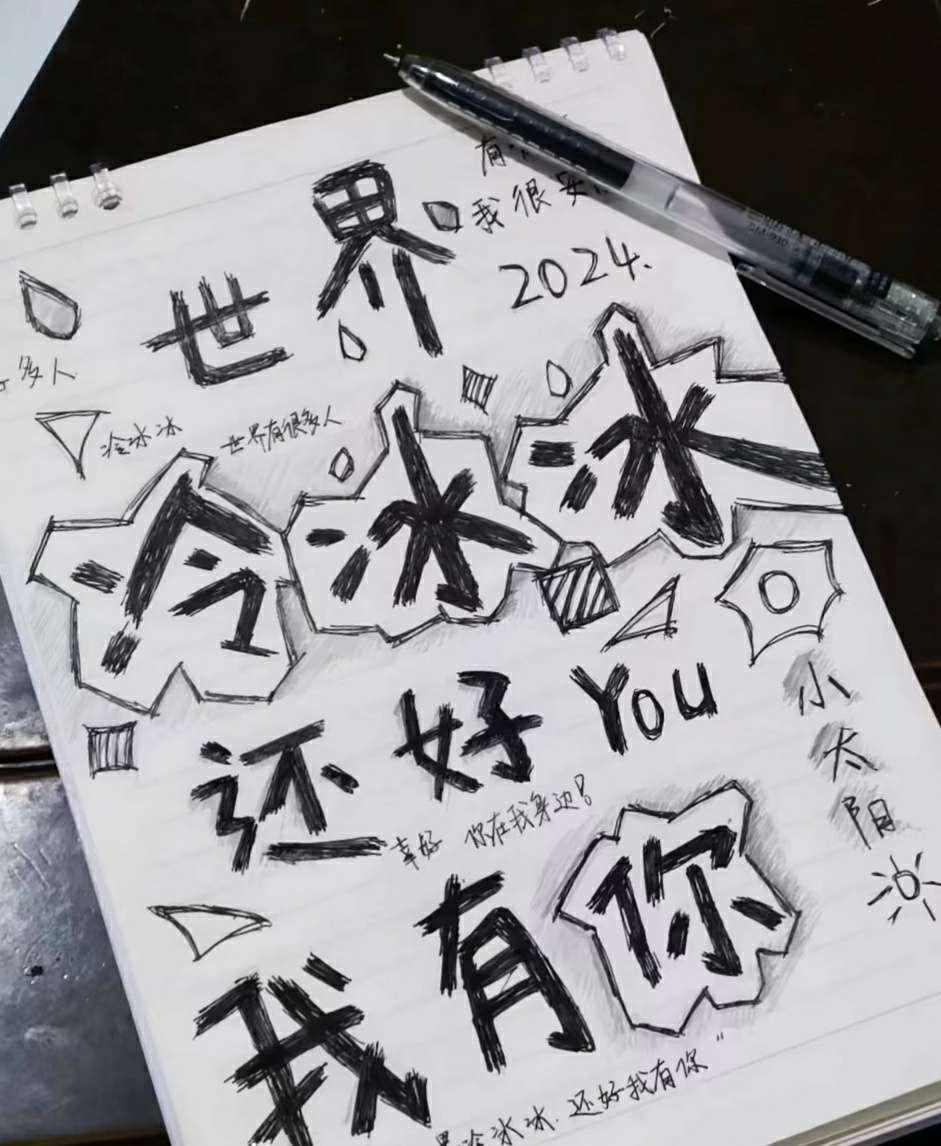 有
我很
世界
2024.
多人
冷冰冰
世界有很多人
冷冰冰
小太阳
还好YOU
幸好 你在我身边!
我有你
冷冰冰.还好我有你"